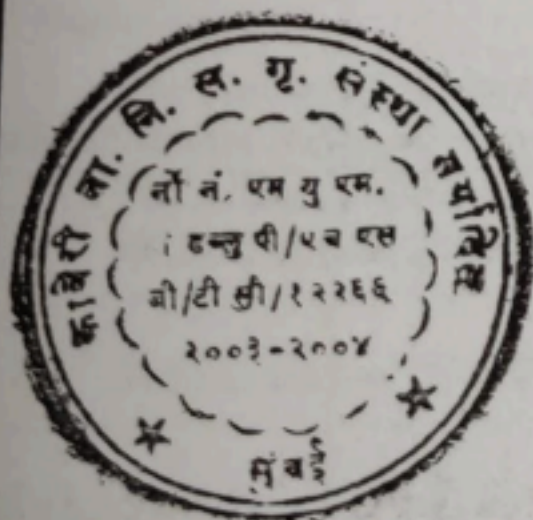 कावेरी ना. नि. स. गृ. संस्था मर्यादित
नों नं. एम यु एम.
डब्लु पी/एच एस
जी/टी सी/१२२६६
२००३-२००४
मुंबई